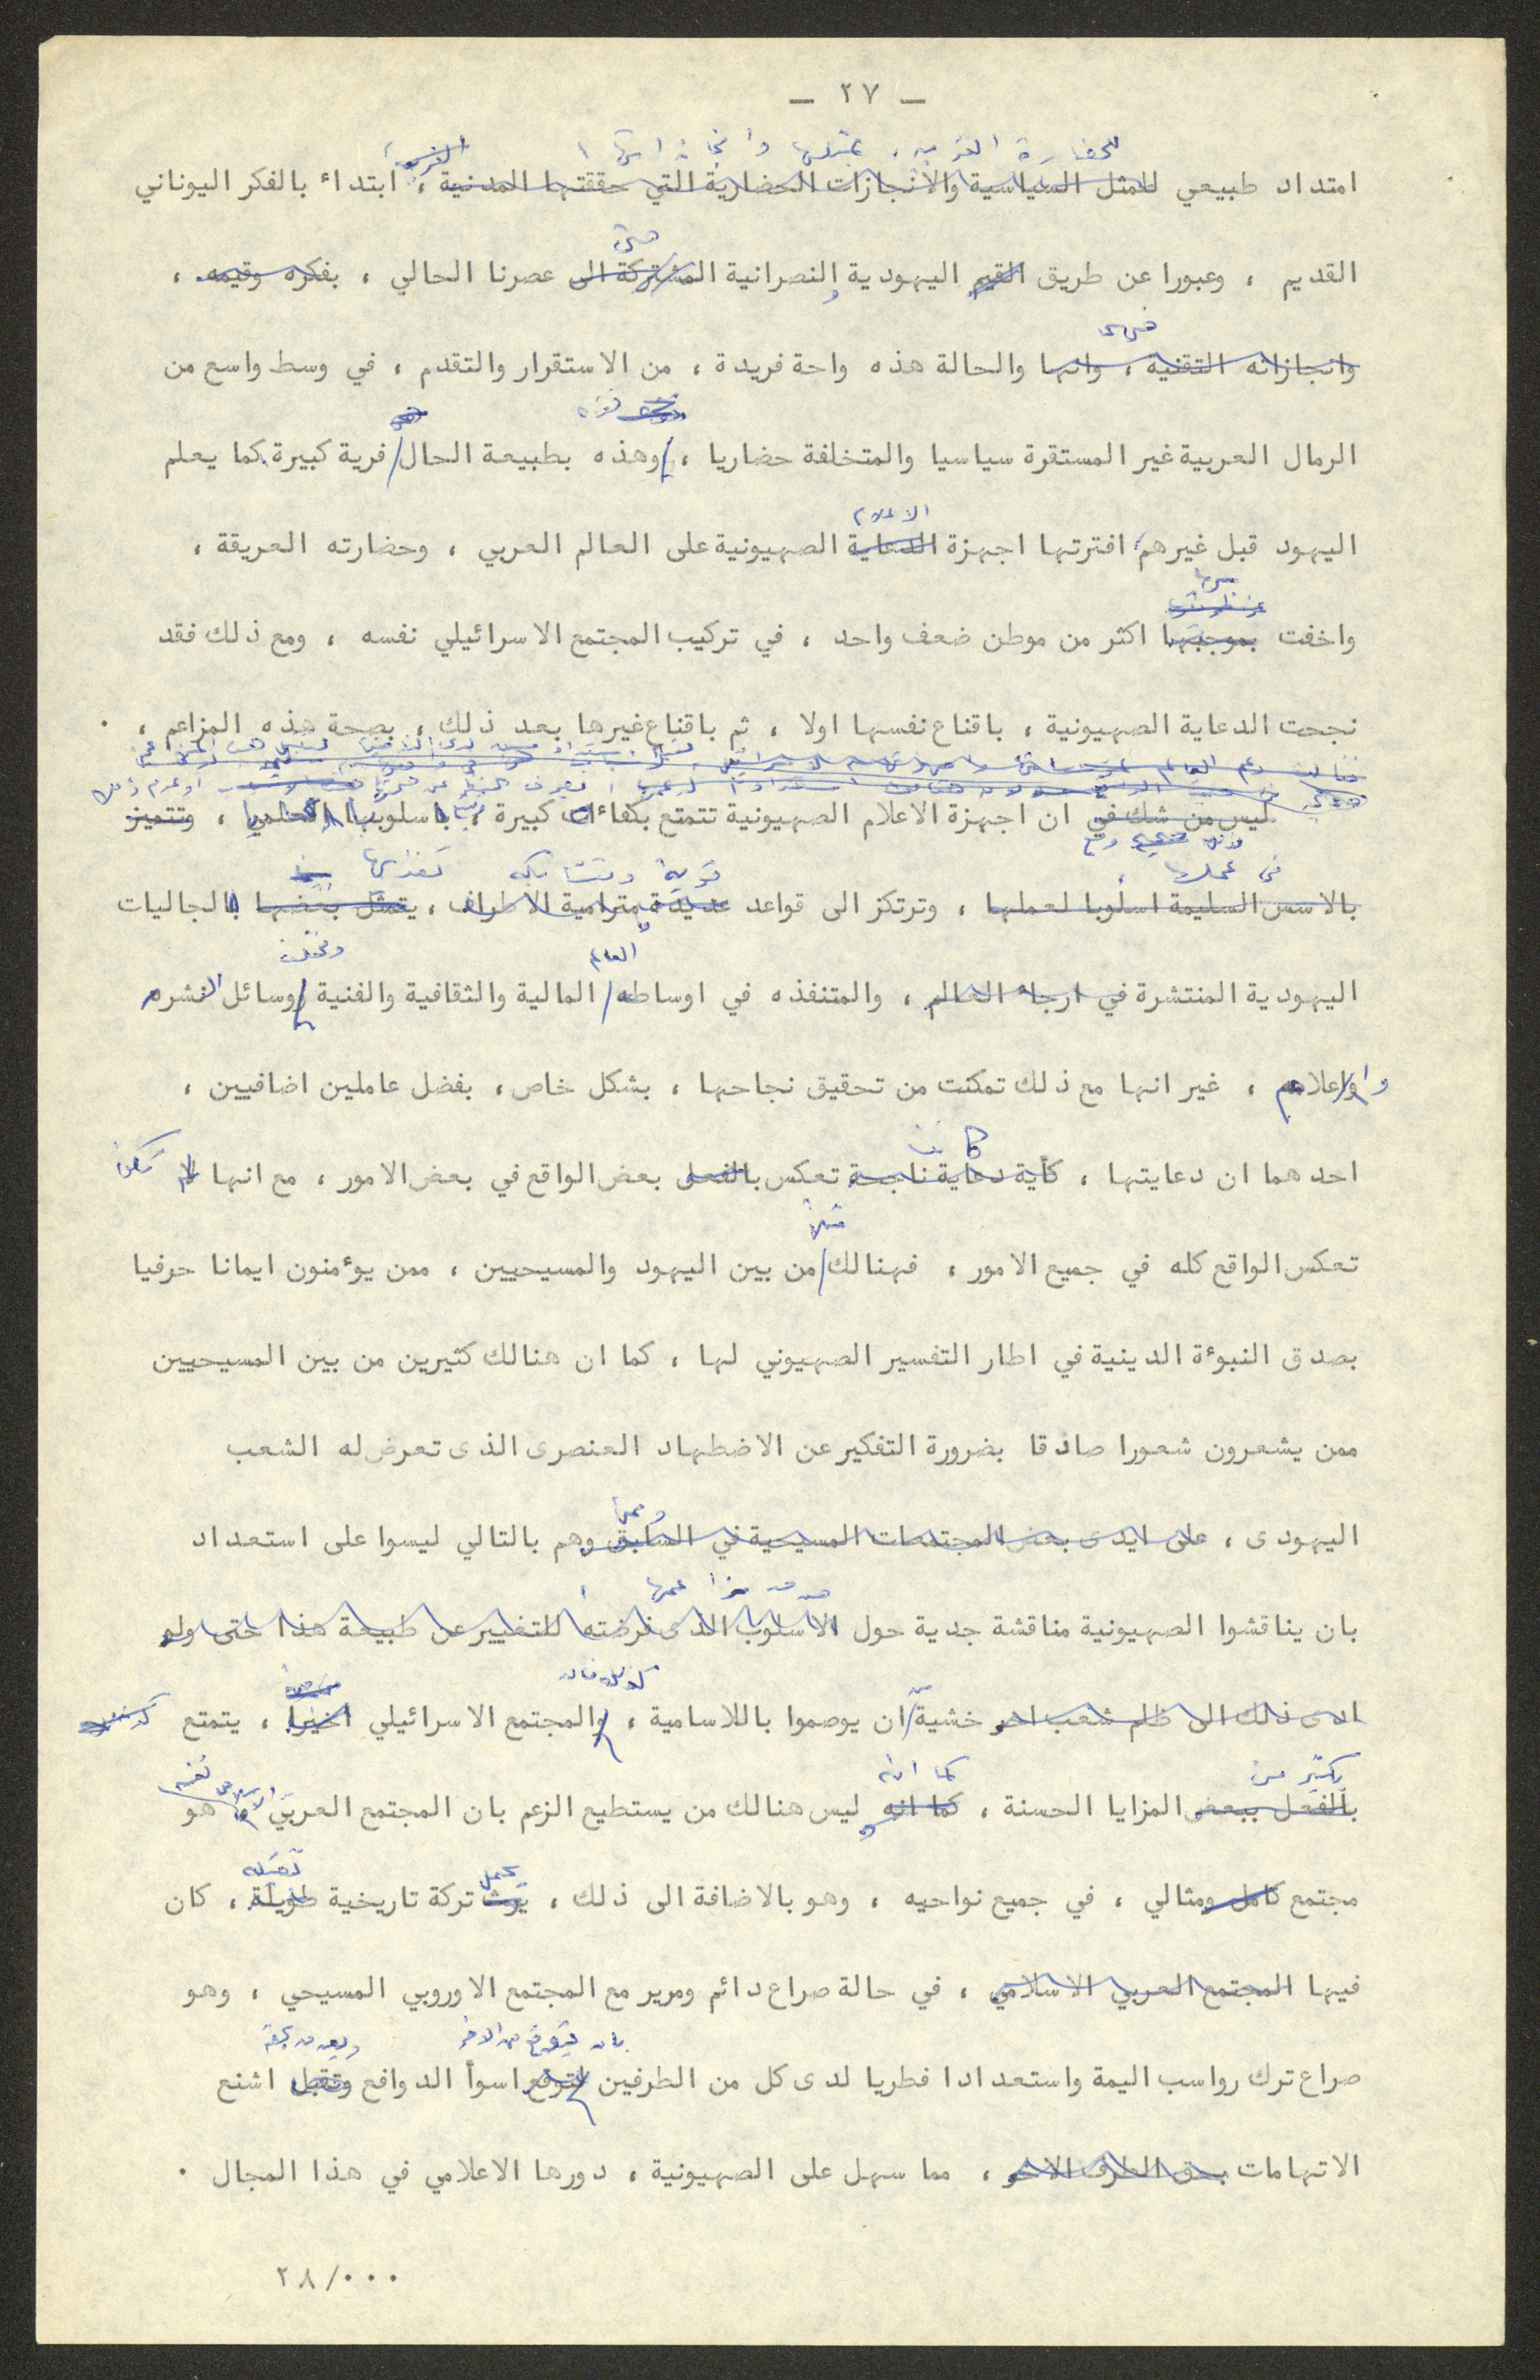 - ٢٧ -
للحضارة الغربية ،
امتداد طبيعي للمثل السياسية والانجازات الحضارية التي حققتها المدنية ، ابتداء بالفكر اليوناني
حتى
القديم ، وعبورا عن طريق القيم اليهودية والنصرانية المشتركة الى عصرنا الحالي ، بفكره وقيمه ،
فهي
وانجازاته التقنية ، وانها والحالة هذه واحة فريدة ، من الاستقرار والتقدم ، في وسط واسع من
الرمال العربية غير المستقرة سياسيا والمتخلفة حضاريا ، وهذه بطبيعة الحال فرية كبيرة كما يعلم
الاعلام
اليهود قبل غيرهم افترتها اجهزة الدعاية الصهيونية على العالم العربي ، وحضارته العريقة ،
واخفت بموجبها اكثر من موطن ضعف واحد ، في تركيب المجتمع الاسرائيلي نفسه ، ومع ذلك فقد
نجحت الدعاية الصهيونية ، باقناع نفسها اولا ، ثم باقناع غيرها بعد ذلك ، بصحة هذه المزاعم .
ليس من شك في ان اجهزة الاعلام الصهيونية تتمتع بكفاءات كبيرة ، باسلوبها العلمي ، وتتميز
في عملها ، قوية ومتشابكة
بالاسس السليمة اسلوبا لعملها ، وترتكز الى قواعد عديدة مترامية الاطراف ، يتمثل بعضها بالجاليات
العالم ومختلف
اليهودية المنتشرة في ارجاء العالم ، والمتنفذه في اوساطه المالية والثقافية والفنية ووسائل النشر
واعلامه ، غير انها مع ذلك تمكنت من تحقيق نجاحها ، بشكل خاص ، بفضل عاملين اضافيين ،
كانت
احدهما ان دعايتها ، كأية دعاية ناجحة تعكس بالفعل بعض الواقع في بعض الامور ، مع انها لم تكن
مثلا
تعكس الواقع كله في جميع الامور ، فهنالك من بين اليهود والمسيحيين ، ممن يؤمنون ايمانا حرفيا
بصدق النبوءة الدينية في اطار التفسير الصهيوني لها ، كما ان هنالك كثيرين من بين المسيحيين
ممن يشعرون شعورا صادقا بضرورة التفكير عن الاضطهاد العنصرى الذى تعرض له الشعب
وممن
اليهودى ، على ايدى بعض المجتمعات المسيحية في السابق وهم بالتالي ليسوا على استعداد
صدق مزاعمها
بان يناقشوا الصهيونية مناقشة جدية حول الاسلوب الذى فرضته للتغيير عن طبيعة هذا حتى ولو
كذلك فان
ادى ذلك الى ظلم شعب اخر خشية من ان يوصموا باللاسامية ، والمجتمع الاسرائيلي اخيرا ، يتمتع
بكثير من كما انه الاسلامي نفسه
بالفعل ببعض المزايا الحسنة ، كما انه ليس هنالك من يستطيع الزعم بان المجتمع العربي هو
يحمل ثقيلة
مجتمع كامل ومثالي ، في جميع نواحيه ، وهو بالاضافة الى ذلك ، يرث تركة تاريخية طويلة ، كان
فيها المجتمع العربي الاسلامي ، في حالة صراع دائم ومرير مع المجتمع الاوروبي المسيحي ، وهو
بان يتوقع من الاخر
صراع ترك رواسب اليمة واستعدادا فطريا لدى كل من الطرفين لتوقع اسوأ الدوافع وتقبل اشنع
الاتهامات بحق الطرف الاخر ، مما سهل على الصهيونية ، دورها الاعلامي في هذا المجال .
٢٨/٠٠٠